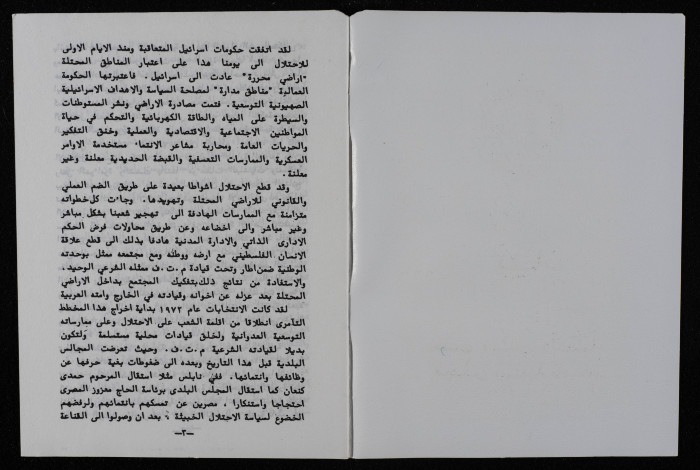 لقد اتفقت حكومات اسرائيل المتعاقبة ومنذ الايام الاولى
للاحتلال الى يومنا هذا على اعتبار المناطق المحتلة
"اراضي محررة" عادت الى اسرائيل. فاعتبرتها الحكومة
العمالية "مناطق مدارة" لمصلحة السياسة والاهداف الاسرائيلية
الصهيونية التوسعية. فتمت مصادرة الاراضي ونشر المستوطنات
والسيطرة على المياه والطاقة الكهربائية والتحكم في حياة
المواطنين الاجتماعية والاقتصادية والعملية وخنق التفكير
والحريات العامة ومحاربة مشاعر الانتماء مستخدمة الاوامر
العسكرية والممارسات التعسفية والقبضة الحديدية معلنة وغير
معلنة.
وقد قطع الاحتلال اشواطا بعيدة على طريق الضم العملي
والقانوني للاراضي المحتلة وتهويدها. وجاءت كل خطواته
متزامنة مع الممارسات الهادفة الى تهجير شعبنا بشكل مباشر
وغير مباشر والى اخضاعه وعن طريق محاولات فرض الحكم
الادارى الذاتي والادارة المدنية هادفا بذلك الى قطع علاقة
الانسان الفلسطيني مع ارضه ووطنه ومع مجتمعه ممثل بوحدته
الوطنية ضمن اطار وتحت قيادة م.ت.ف ممثله الشرعي الوحيد.
والاستفادة من نتائج ذلك بتفكيك المجتمع بداخل الاراضي
المحتلة بعد عزله عن اخوانه وقيادته في الخارج وامته العربية
لقد كانت الانتخابات عام ١٩٧٢ بداية اخراج هذا المخطط
التآمرى انطلاقا من اقلمة الشعب على الاحتلال وعلى ممارساته
التوسعية العدوانية ولخلق قيادات محلية مستسلمة ولتكون
بديلا لقيادته الشرعية م.ت.ف. وحيث تعرضت المجالس
البلدية قبل هذا التاريخ وبعده الى ضغوطات بغية حرفها عن
وظائفها وانتمائها. ففي نابلس مثلا استقال المرحوم حمدى
كنعان كما استقال المجلس البلدى برئاسة الحاج معزوز المصرى
احتجاجا واستنكارا، مصرين عن تمسكهم بانتمائهم ولرفضهم
الخضوع لسياسة الاحتلال الخبيثة، بعد ان وصولوا الى القناعة
—٣—